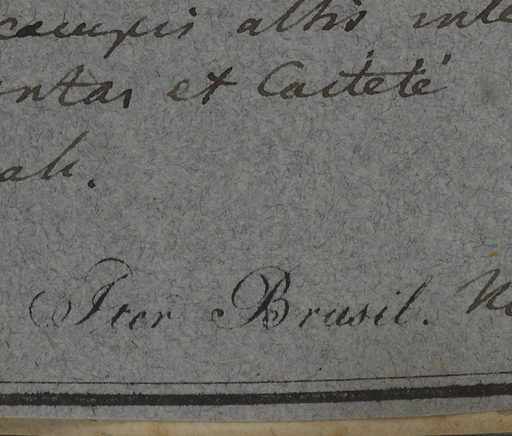 campis altis inte
ntas et Caeteté
ah.
Iter Brasil. No